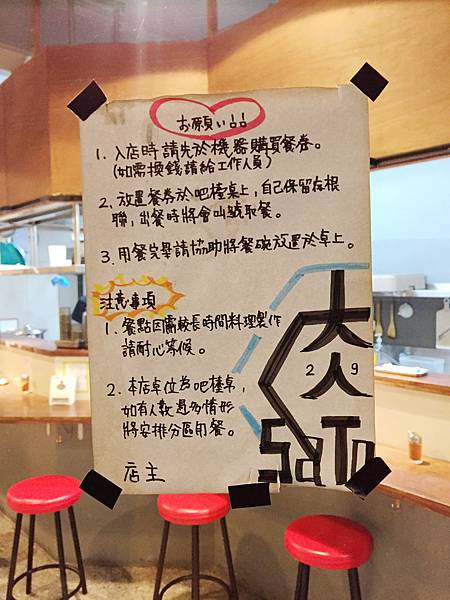 お願い
1. 入店時請先於機器購買餐券。
(如需換錢請給工作人員)
2. 放置餐券於吧檯桌上，自己保留存根
聯，出餐時將會叫號取餐。
3. 用餐完畢請協助將餐碗放置於桌上。
注意事項
1. 餐點因需較長時間料理製作
請耐心等候。
2. 本店桌位為吧檯桌，
如有人數過多情形
將安排分區用餐。
店主
大
人
2 9
SaTo